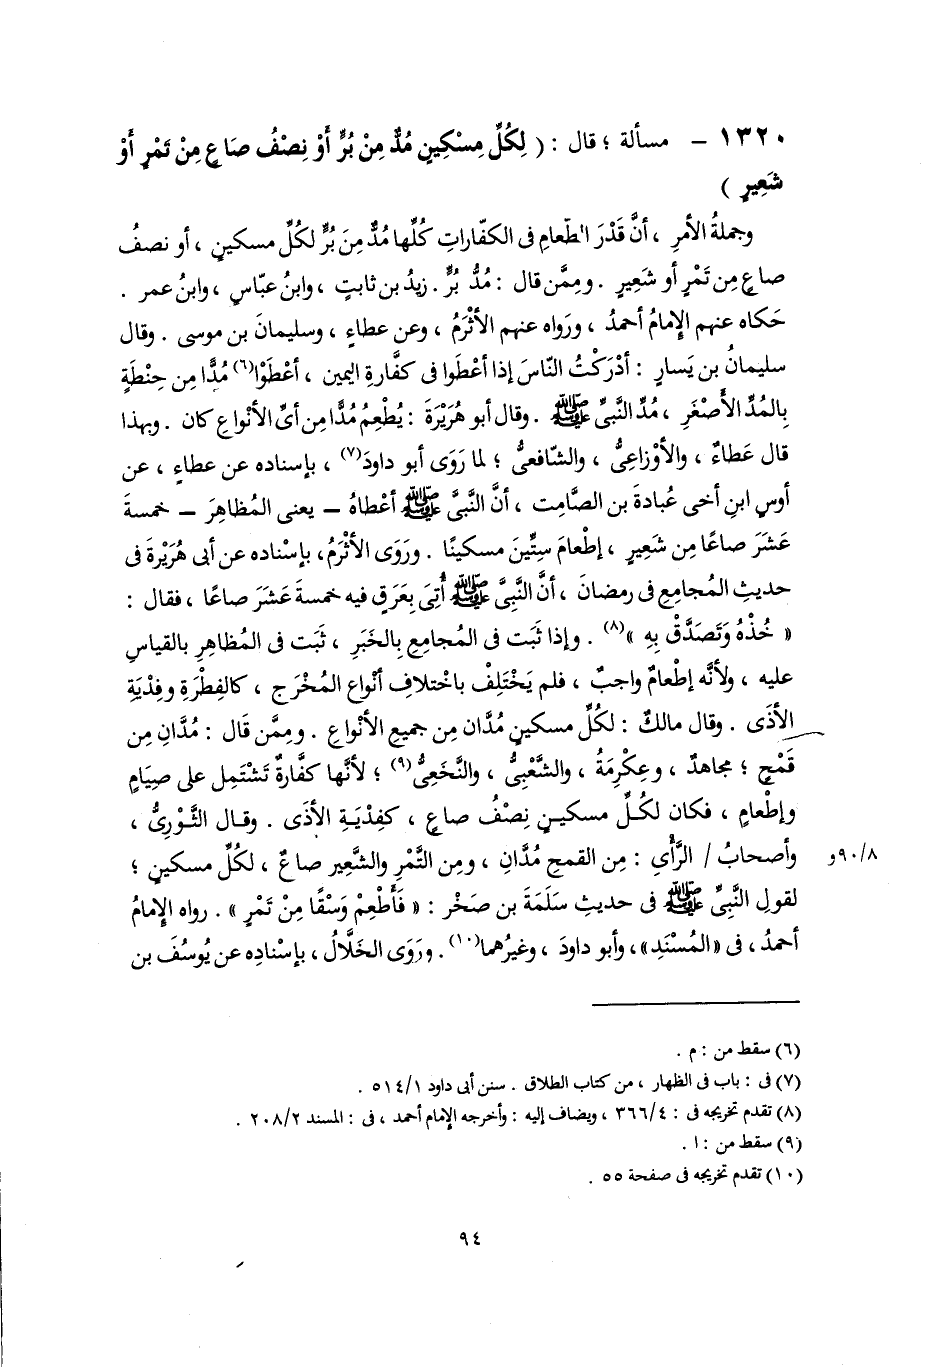 ١٣٢٠ – مسألة ؛ قال : ( لِكُلِّ مِسْكِينٍ مُدٌّ مِنْ بُرٍّ أَوْ نِصْفُ صَاعٍ مِنْ تَمْرٍ أَوْ
شَعِيرٍ )
وجملةُ الأمرِ ، أنَّ قَدْرَ الطّعامِ فى الكفّاراتِ كُلِّها مُدٌّ مِنَ بُرٍّ لكُلِّ مسكينٍ ، أو نصفُ
صاعٍ مِن تَمْرٍ أو شَعِيرٍ . ومِمَّن قال : مُدُّ بُرٍّ . زيدُ بن ثابتٍ ، وابنُ عبّاسٍ ، وابنُ عمر .
حَكاه عنهم الإِمامُ أحمدُ ، ورَواه عنهم الأثْرَمُ ، وعن عطاءٍ ، وسليمانَ بن موسى . وقال
سليمانُ بن يَسارٍ : أدْرَكْتُ النّاسَ إذا أعْطَوا فى كفَّارةِ اليمينِ ، أعْطَوْا(٦) مُدًّا مِن حِنطَةٍ
بِالمُدِّ الأَصْغَرِ ، مُدِّ النَّبِىِّ ﷺ . وقال أبو هُرَيْرَةَ : يُطْعِمُ مُدًّا مِن أىِّ الأنْواعِ كان . وبهذا
قال عَطاءٌ ، والأوْزاعِىُّ ، والشّافعىُّ ؛ لما رَوَى أبو داودَ(٧) ، بإسناده عن عطاءٍ ، عن
أوسٍ ابنِ أخى عُبادةَ بن الصَّامِت ، أنَّ النَّبِىَّ ﷺ أعْطاهُ – يعنى المُظاهِرَ – خمسةَ
عَشَرَ صاعًا مِن شَعِيرٍ ، إطْعامَ سِتِّينَ مسكينًا . ورَوَى الأثْرَمُ، بإسْناده عن أبى هُرَيْرةَ فى
حديثِ المُجامِعِ فى رمضانَ ، أنَّ النَّبِىَّ ﷺ أُتِىَ بِعَرَقٍ فيه خمسةَ عَشَرَ صاعًا ، فقال :
« خُذْهُ وَتَصَدَّقْ بِهِ »(٨) . وإذا ثَبَت فى المُجامِعِ بِالخَبَرِ ، ثَبَت فى المُظاهِرِ بالقياسِ
عليه ، ولأنَّه إطْعامٌ واجبٌ ، فلم يَخْتَلِفْ باخْتلافِ أنْواعِ المُخْرَجِ ، كالفِطْرَةِ وفِدْيَةِ
الأذَى . وقال مالكٌ : لكُلِّ مسكينٍ مُدَّان مِن جميعِ الأنْواعِ . ومِمَّن قَال : مُدَّانِ مِن
قَمْحٍ ؛ مجاهدٌ ، وعِكْرِمَةُ ، والشَّعْبِىُّ ، والنَّخَعِىُّ(٩) ؛ لأنَّها كفَّارةٌ تَشْتَمِل على صيَامٍ
وإطْعامٍ ، فكان لكُلِّ مسكينٍ نِصْفُ صاعٍ ، كفِدْيَةِ الأذَى . وقال الثَّوْرِىُّ ،
وأصحابُ / الرَّأْىِ : مِن القمحِ مُدَّانِ ، ومِن التَّمْرِ والشَّعِير صاعٌ ، لكُلِّ مسكينٍ ؛ ٩٠/٨و
لقولِ النَّبِىِّ ﷺ فى حديثِ سَلَمَةَ بن صَخْر : « فَأَطْعِمْ وَسْقًا مِنْ تَمْرٍ » . رواه الإمامُ
أحمدُ ، فى «المُسْنَدِ»، وأبو داودَ ، وغيرُهما(١٠). ورَوَى الخَلَّالُ ، بإسْنادِه عن يُوسُفَ بن
(٦) سقط من : م .
(٧) فى : باب فى الظهار ، من كتاب الطلاق . سنن أبى داود ٥١٤/١ .
(٨) تقدم تخريجه فى : ٣٦٦/٤ ، ويضاف إليه : وأخرجه الإمام أحمد ، فى : المسند ٢٠٨/٢ .
(٩) سقط من : ا .
(١٠) تقدم تخريجه فى صفحة ٥٥ .
٩٤